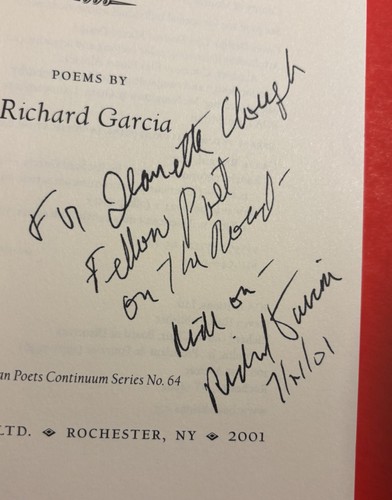 POEMS BY
Richard Garcia
For Jeanette Clough
Fellow Poet
on The Road-
Ride on-
Richard Garcia
7/21/01
an Poets Continuum Series No. 64
LTD. ❖ ROCHESTER, NY ❖ 2001